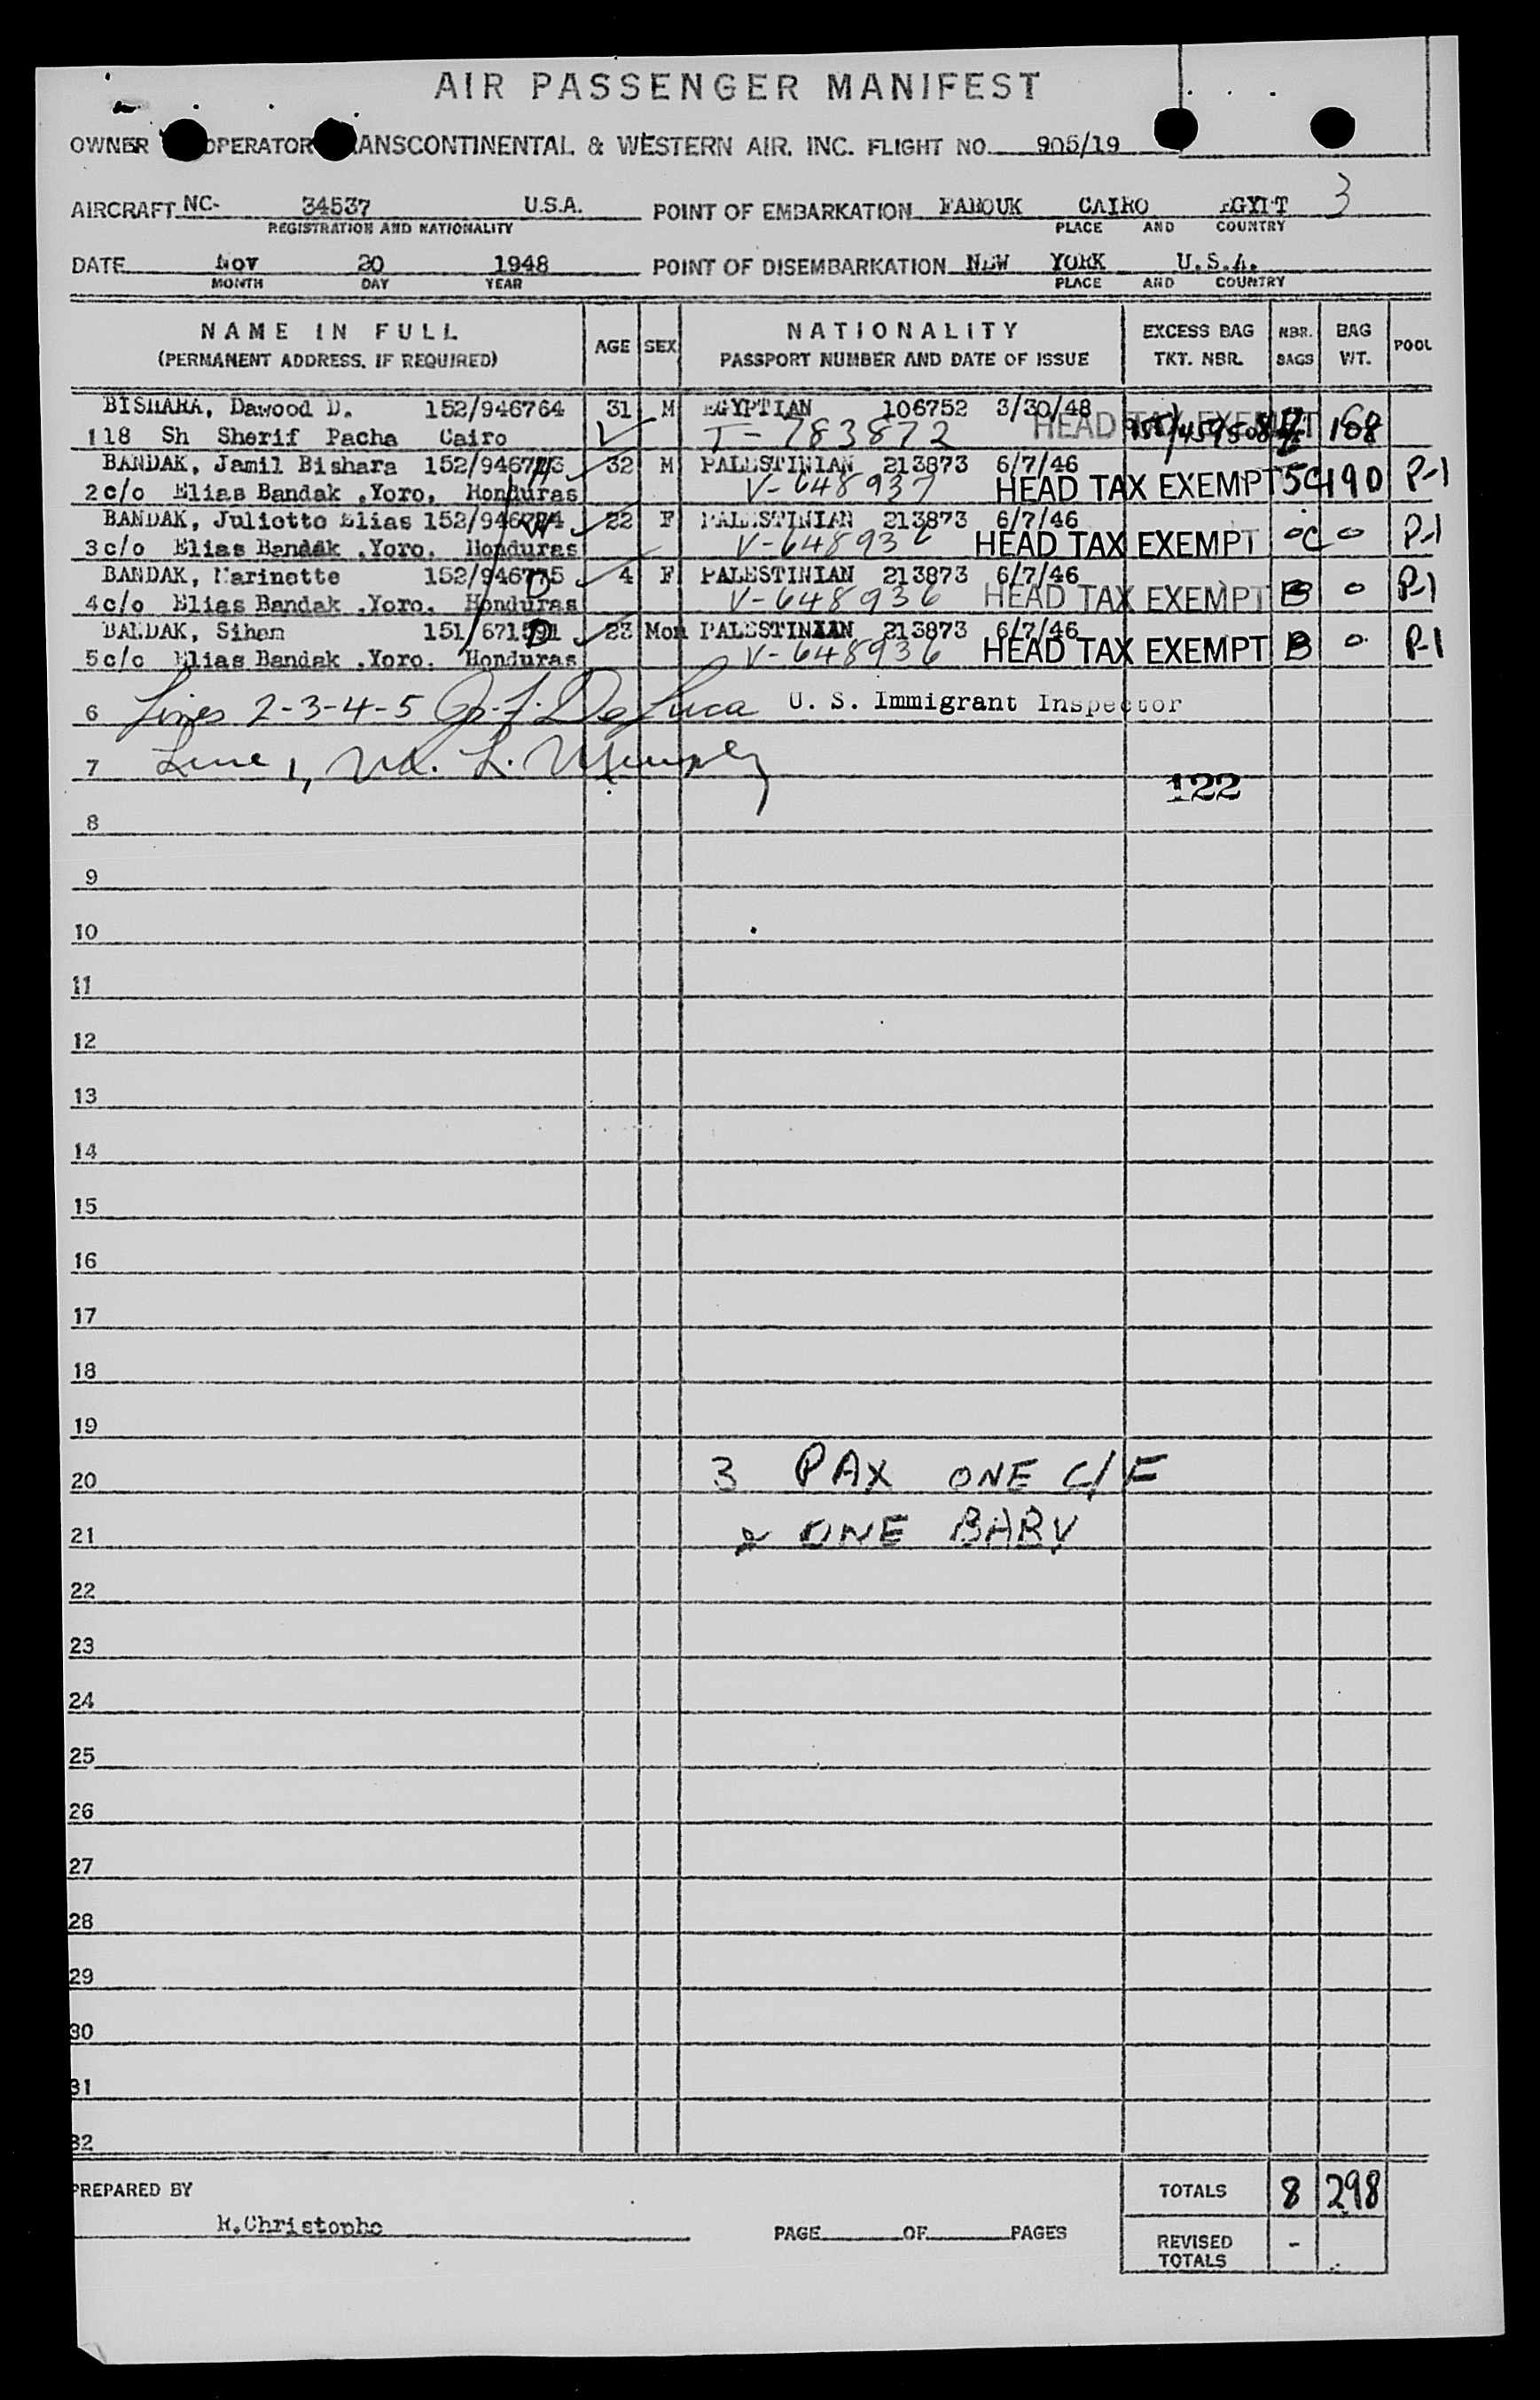 AIR PASSENGER MANIFEST
OWNER OPERATOR ANSCONTINENTAL & WESTERN AIR, INC. FLIGHT NO. 905/19
AIRCRAFT NC- 34537 U.S.A. POINT OF EMBARKATION FAROUK CAIRO EGYPT 3
REGISTRATION AND NATIONALITY PLACE AND COUNTRY
DATE Nov 20 1948 POINT OF DISEMBARKATION NEW YORK U.S.A.
MONTH DAY YEAR PLACE AND COUNTRY
NAME IN FULL AGE SEX NATIONALITY EXCESS BAG NBR. BAG POOL
(PERMANENT ADDRESS, IF REQUIRED) PASSPORT NUMBER AND DATE OF ISSUE TKT. NBR. BAGS WT.
BISHARA, Dawood D. 152/946764 31 M EGYPTIAN 106752 3/30/48 HEAD TAX EXEMPT
1 18 Sh Sherif Pacha Cairo T-783872 108
BANDAK, Jamil Bishara 32 M PALESTINIAN 213873 6/7/46
2 c/o Elias Bandak ,Yoro, Honduras V-648937 HEAD TAX EXEMPT 5C 190 P-1
BANDAK, Juliette Elias 22 F PALESTINIAN 213873 6/7/46
3 c/o Elias Bandak ,Yoro, Honduras V-648936 HEAD TAX EXEMPT 0C 0 P-1
BANDAK, Marinette 4 F PALESTINIAN 213873 6/7/46
4 c/o Elias Bandak ,Yoro, Honduras V-648936 HEAD TAX EXEMPT B 0 P-1
BANDAK, Sihem 23 Mon PALESTINIAN 213873 6/7/46
5 c/o Elias Bandak ,Yoro, Honduras V-648936 HEAD TAX EXEMPT B 0 P-1
6 Lines 2-3-4-5 De Luca U. S. Immigrant Inspector
7 Line 1,
122
8
9
10
11
12
13
14
15
16
17
18
19
20 3 PAX ONE C/F
21 & ONE BABY
22
23
24
25
26
27
28
29
30
31
32
PREPARED BY TOTALS 8 298
K.Christophe PAGE OF PAGES REVISED TOTALS -